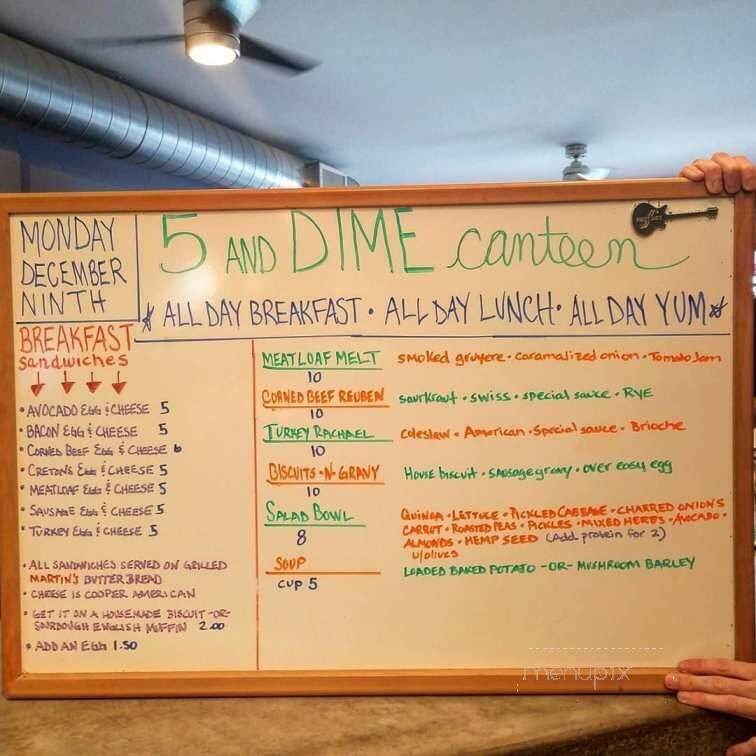 MONDAY
DECEMBER
NINTH
5 AND DIME canteen
ALL DAY BREAKFAST • ALL DAY LUNCH • ALL DAY YUM
BREAKFAST
sandwiches
• AVOCADO EGG & CHEESE 5
• BACON EGG & CHEESE 5
• CORNED BEEF EGG & CHEESE 6
• CRETONS EGG & CHEESE 5
• MEATLOAF EGG & CHEESE 5
• SAUSAGE EGG & CHEESE 5
• TURKEY EGG & CHEESE 5
• ALL SANDWICHES SERVED ON GRILLED
MARTIN'S BUTTER BREAD
• CHEESE IS COOPER AMERICAN
• GET IT ON A HOUSEMADE BISCUIT -OR-
SOURDOUGH ENGLISH MUFFIN 2.00
• ADD AN EGG 1.50
MEATLOAF MELT smoked gruyere • caramalized onion • Tomato Jam
10
CORNED BEEF REUBEN saurkraut • swiss • special sauce • RYE
10
TURKEY RACHAEL coleslaw • American • Special sauce • Brioche
10
BISCUITS -N- GRAVY House biscuit • sausage gravy • over easy egg
10
SALAD BOWL QUINOA • LETTUCE • PICKLED CABBAGE • CHARRED ONIONS
8 CARROT • ROASTED PEAS • PICKLES • MIXED HERBS • AVOCADO •
ALMONDS • HEMP SEED (Add protein for 2)
w/olives
SOUP LOADED BAKED POTATO -OR- MUSHROOM BARLEY
CUP 5
menupix